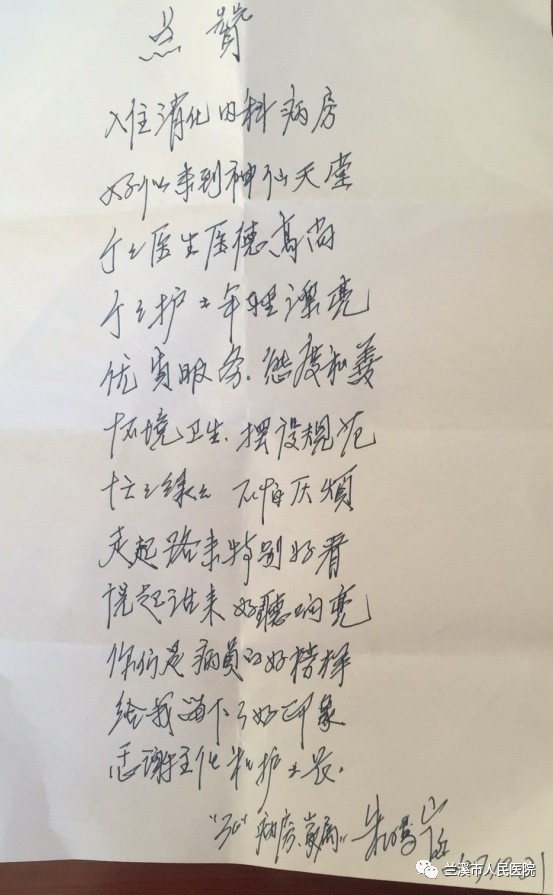 点赞
入住消化内科病房
好似来到神仙天堂
个个医生医德高尚
个个护士年轻漂亮
优质服务.态度和善
环境卫生.摆设规范
忙忙碌碌 不怕厌烦
走起路来特别好看
说起话来好聽响亮
你们是病員的好榜样
给我留下了好印象
感谢主任和护士长.
病房
兰溪市人民医院